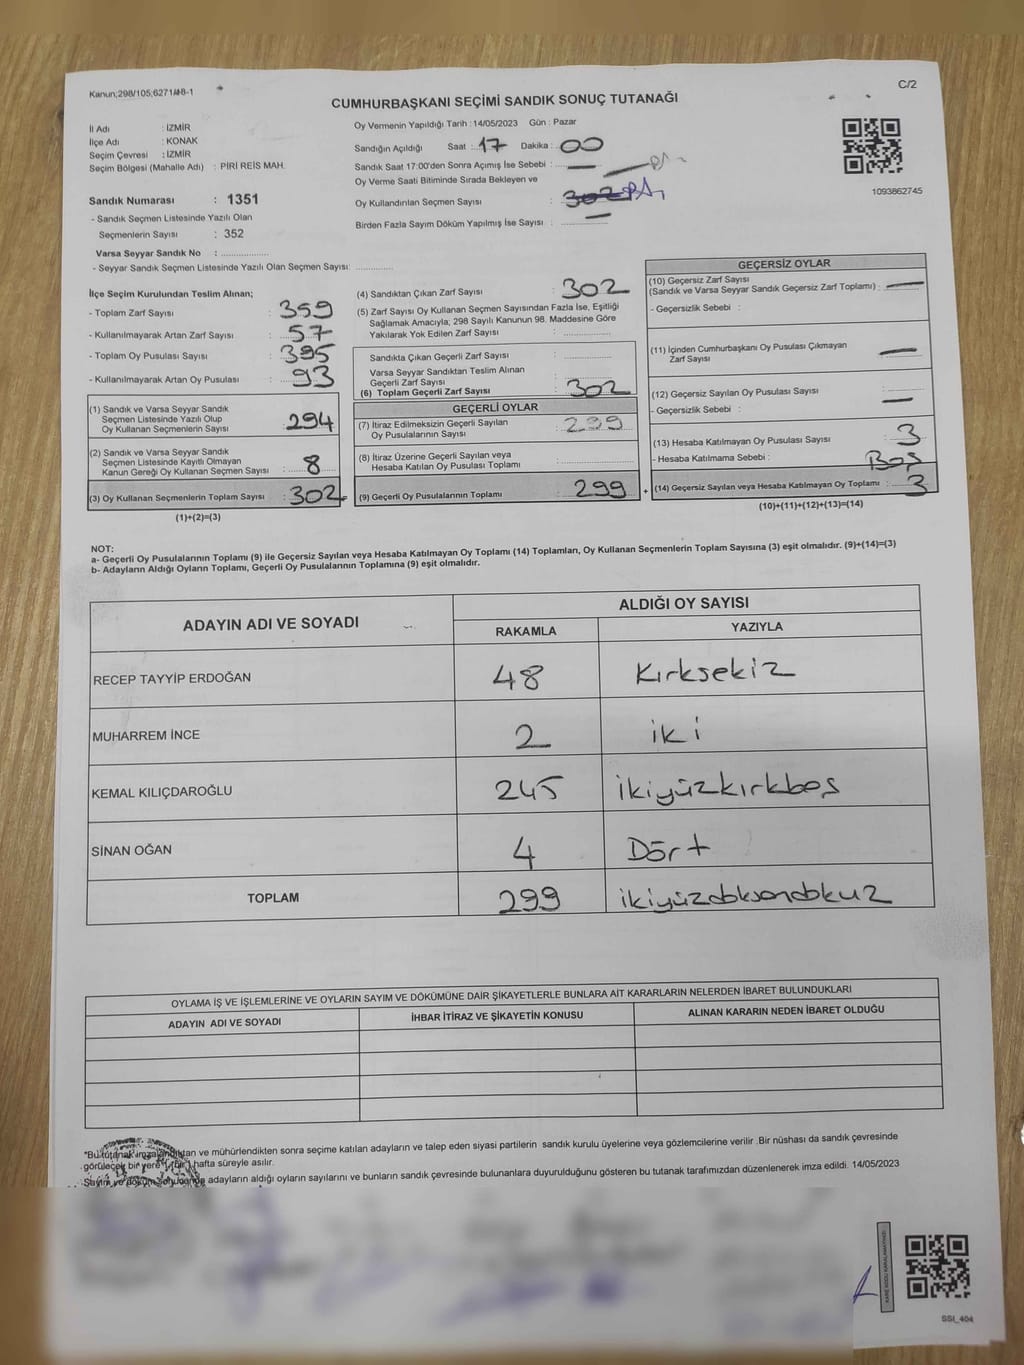 Kanun;298/105;6271/4-8-1
C/2
CUMHURBAŞKANI SEÇİMİ SANDIK SONUÇ TUTANAĞI
İl Adı : İZMİR
İlçe Adı : KONAK
Seçim Çevresi : İZMİR
Seçim Bölgesi (Mahalle Adı) : PİRİ REİS MAH.
Sandık Numarası : 1351
- Sandık Seçmen Listesinde Yazılı Olan
Seçmenlerin Sayısı : 352
Varsa Seyyar Sandık No :
- Seyyar Sandık Seçmen Listesinde Yazılı Olan Seçmen Sayısı:
Oy Vermenin Yapıldığı Tarih : 14/05/2023 Gün : Pazar
Sandığın Açıldığı Saat : 17 Dakika : 00
Sandık Saat 17:00'den Sonra Açımış İse Sebebi : —
Oy Verme Saati Bitiminde Sırada Bekleyen ve
Oy Kullandırılan Seçmen Sayısı : 302
Birden Fazla Sayım Döküm Yapılmış İse Sayısı : —
1093862745
İlçe Seçim Kurulundan Teslim Alınan;
- Toplam Zarf Sayısı : 359
- Kullanılmayarak Artan Zarf Sayısı : 57
- Toplam Oy Pusulası Sayısı : 395
- Kullanılmayarak Artan Oy Pusulası : 93
(1) Sandık ve Varsa Seyyar Sandık
Seçmen Listesinde Yazılı Olup
Oy Kullanan Seçmenlerin Sayısı : 294
(2) Sandık ve Varsa Seyyar Sandık
Seçmen Listesinde Kayıtlı Olmayan
Kanun Gereği Oy Kullanan Seçmen Sayısı : 8
(3) Oy Kullanan Seçmenlerin Toplam Sayısı : 302
(1)+(2)=(3)
(4) Sandıktan Çıkan Zarf Sayısı : 302
(5) Zarf Sayısı Oy Kullanan Seçmen Sayısından Fazla İse, Eşitliği
Sağlamak Amacıyla, 298 Sayılı Kanunun 98. Maddesine Göre
Yakılarak Yok Edilen Zarf Sayısı :
Sandıkta Çıkan Geçerli Zarf Sayısı :
Varsa Seyyar Sandıktan Teslim Alınan
Geçerli Zarf Sayısı :
(6) Toplam Geçerli Zarf Sayısı : 302
GEÇERLİ OYLAR
(7) İtiraz Edilmeksizin Geçerli Sayılan
Oy Pusulalarının Sayısı : 299
(8) İtiraz Üzerine Geçerli Sayılan veya
Hesaba Katılan Oy Pusulası Toplamı :
(9) Geçerli Oy Pusulalarının Toplamı : 299
+
GEÇERSİZ OYLAR
(10) Geçersiz Zarf Sayısı
(Sandık ve Varsa Seyyar Sandık Geçersiz Zarf Toplamı) : —
- Geçersizlik Sebebi :
(11) İçinden Cumhurbaşkanı Oy Pusulası Çıkmayan
Zarf Sayısı : —
(12) Geçersiz Sayılan Oy Pusulası Sayısı : —
- Geçersizlik Sebebi :
(13) Hesaba Katılmayan Oy Pusulası Sayısı : 3
- Hesaba Katılmama Sebebi : Boş
(14) Geçersiz Sayılan veya Hesaba Katılmayan Oy Toplamı : 3
(10)+(11)+(12)+(13)=(14)
NOT:
a- Geçerli Oy Pusulalarının Toplamı (9) ile Geçersiz Sayılan veya Hesaba Katılmayan Oy Toplamı (14) Toplamları, Oy Kullanan Seçmenlerin Toplam Sayısına (3) eşit olmalıdır. (9)+(14)=(3)
b- Adayların Aldığı Oyların Toplamı, Geçerli Oy Pusulalarının Toplamına (9) eşit olmalıdır.
ADAYIN ADI VE SOYADI ALDIĞI OY SAYISI
RAKAMLA YAZIYLA
RECEP TAYYİP ERDOĞAN 48 Kırksekiz
MUHARREM İNCE 2 iki
KEMAL KILIÇDAROĞLU 245 ikiyüzkırkbeş
SİNAN OĞAN 4 Dört
TOPLAM 299 ikiyüzdoksandokuz
OYLAMA İŞ VE İŞLEMLERİNE VE OYLARIN SAYIM VE DÖKÜMÜNE DAİR ŞİKAYETLERLE BUNLARA AİT KARARLARIN NELERDEN İBARET BULUNDUKLARI
ADAYIN ADI VE SOYADI İHBAR İTİRAZ VE ŞİKAYETİN KONUSU ALINAN KARARIN NEDEN İBARET OLDUĞU
*Bu tutanak imzalandıktan ve mühürlendikten sonra seçime katılan adayların ve talep eden siyasi partilerin sandık kurulu üyelerine veya gözlemcilerine verilir .Bir nüshası da sandık çevresinde
görülecek bir yere 1 (bir) hafta süreyle asılır.
Sayım ve döküm sonucunda adayların aldığı oyların sayılarını ve bunların sandık çevresinde bulunanlara duyurulduğunu gösteren bu tutanak tarafımızdan düzenlenerek imza edildi. 14/05/2023
KARE KODU KARALAMAYINIZ!
SSI_404